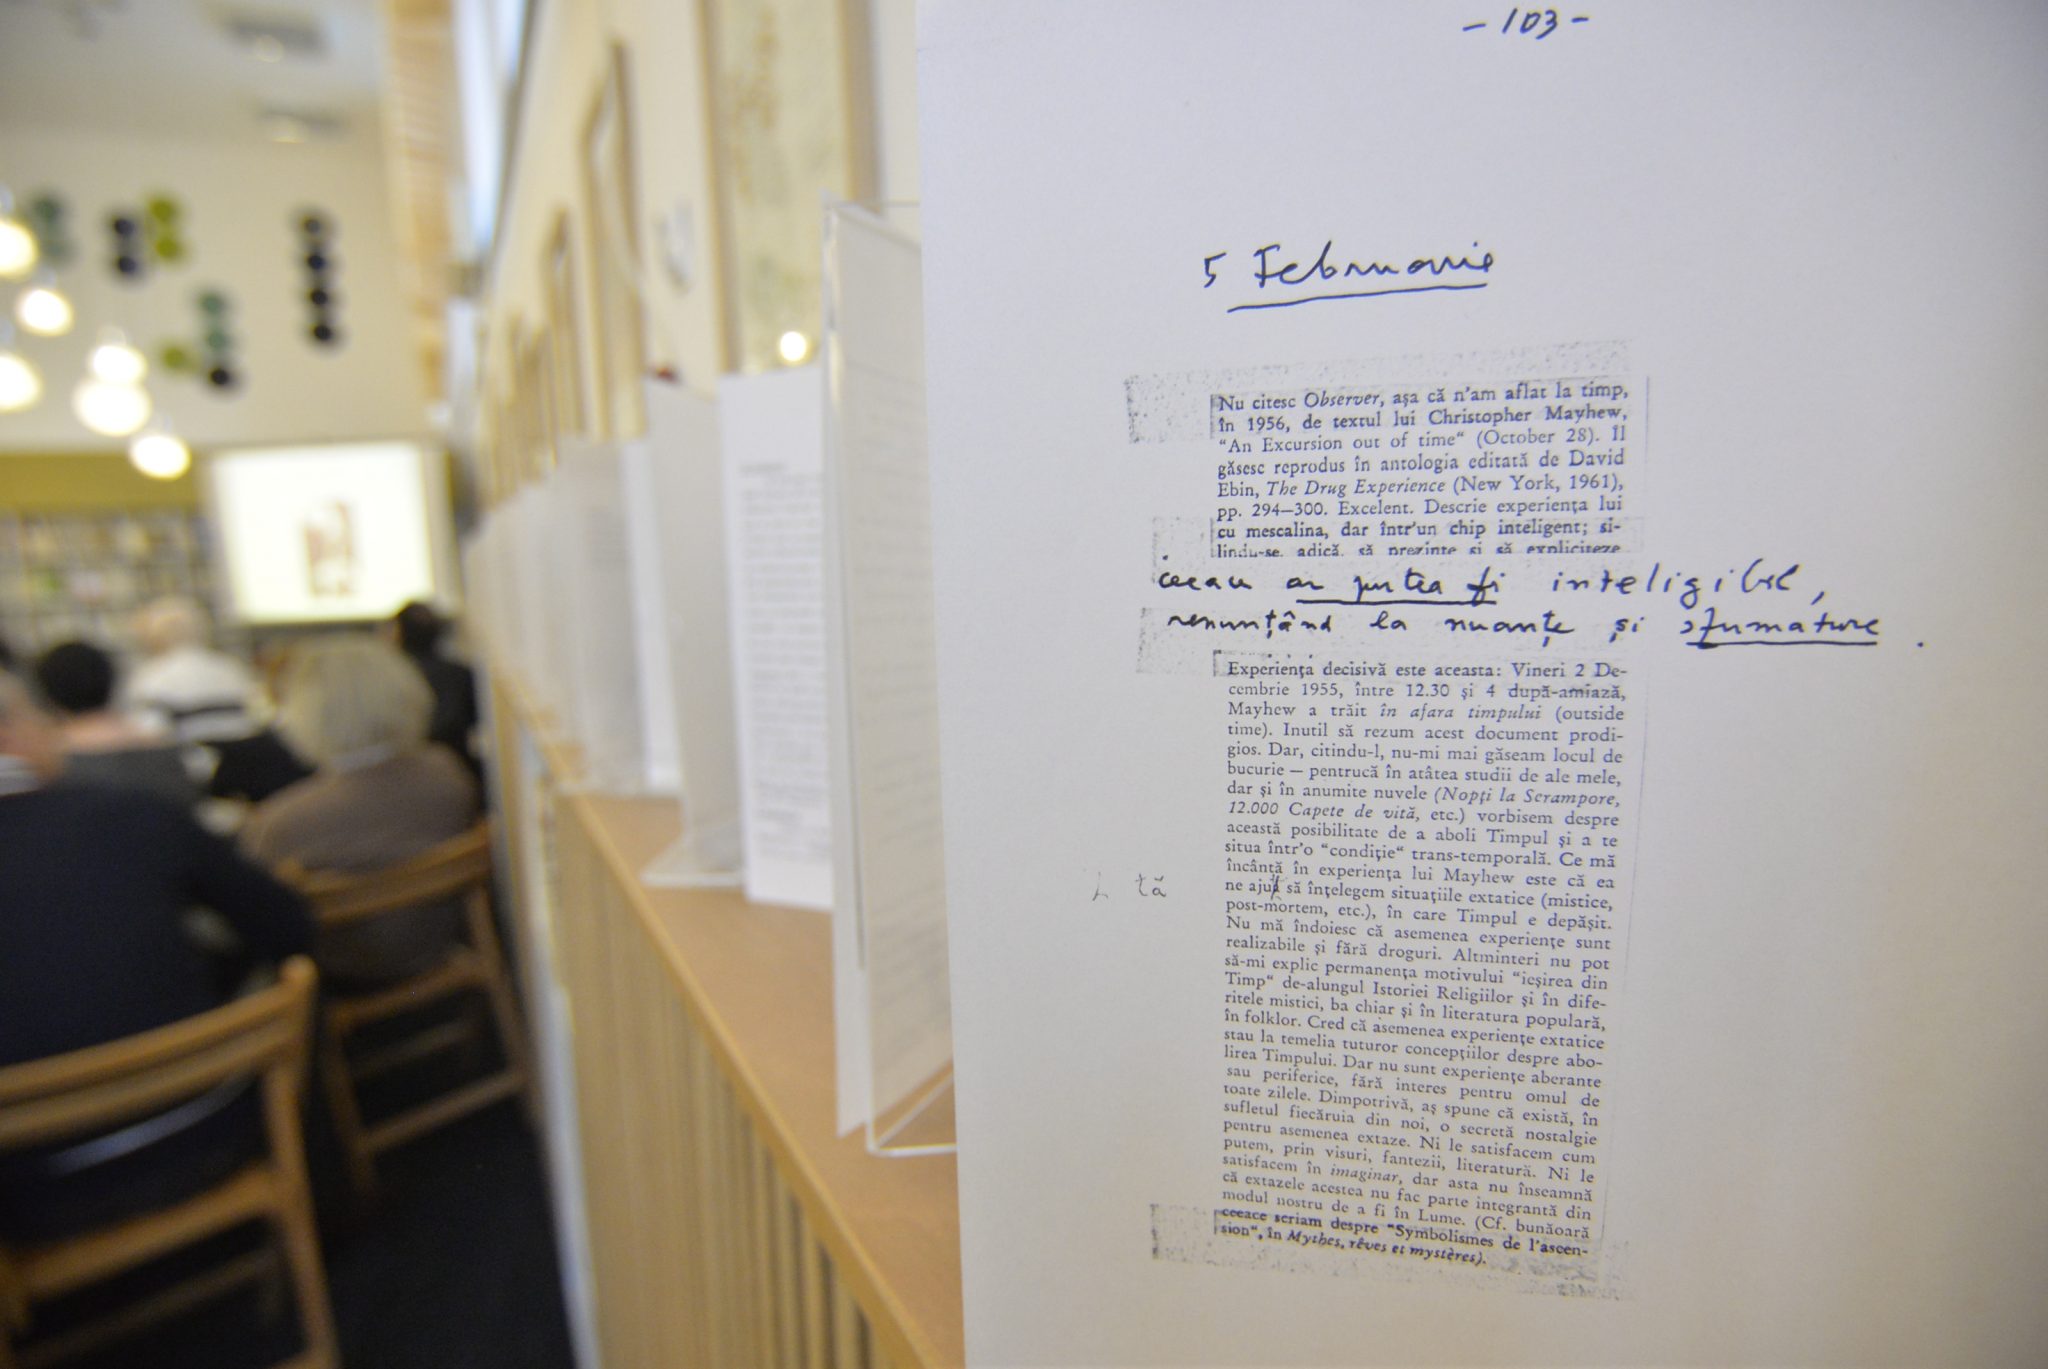 - 103 -
5 Februarie
Nu citesc Observer, aşa că n'am aflat la timp,
în 1956, de textul lui Christopher Mayhew,
"An Excursion out of time“ (October 28). Îl
găsesc reprodus în antologia editată de David
Ebin, The Drug Experience (New York, 1961),
pp. 294—300. Excelent. Descrie experienţa lui
cu mescalina, dar într'un chip inteligent; si-
lindu-se, adică, să prezinte şi să expliciteze
ceeace ar putea fi inteligibil,
renunţând la nuanţe şi sfumature.
Experienţa decisivă este aceasta: Vineri 2 De-
cembrie 1955, între 12.30 şi 4 după-amiază,
Mayhew a trăit în afara timpului (outside
time). Inutil să rezum acest document prodi-
gios. Dar, citindu-l, nu-mi mai găseam locul de
bucurie — pentrucă în atâtea studii de ale mele,
dar şi în anumite nuvele (Nopţi la Serampore,
12.000 Capete de vită, etc.) vorbisem despre
această posibilitate de a aboli Timpul şi a te
situa într'o "condiţie“ trans-temporală. Ce mă
încântă în experienţa lui Mayhew este că ea
tă ne ajut să înţelegem situaţiile extatice (mistice,
post-mortem, etc.), în care Timpul e depăşit.
Nu mă îndoiesc că asemenea experienţe sunt
realizabile şi fără droguri. Altminteri nu pot
să-mi explic permanenţa motivului "ieşirea din
Timp“ de-alungul Istoriei Religiilor şi în dife-
ritele mistici, ba chiar şi în literatura populară,
în folklor. Cred că asemenea experienţe extatice
stau la temelia tuturor concepţiilor despre abo-
lirea Timpului. Dar nu sunt experienţe aberante
sau periferice, fără interes pentru omul de
toate zilele. Dimpotrivă, aş spune că există, în
sufletul fiecăruia din noi, o secretă nostalgie
pentru asemenea extaze. Ni le satisfacem cum
putem, prin visuri, fantezii, literatură. Ni le
satisfacem în imaginar, dar asta nu înseamnă
că extazele acestea nu fac parte integrantă din
modul nostru de a fi în Lume. (Cf. bunăoară
ceeace scriam despre "Symbolismes de l'ascen-
sion“, în Mythes, rêves et mystères).